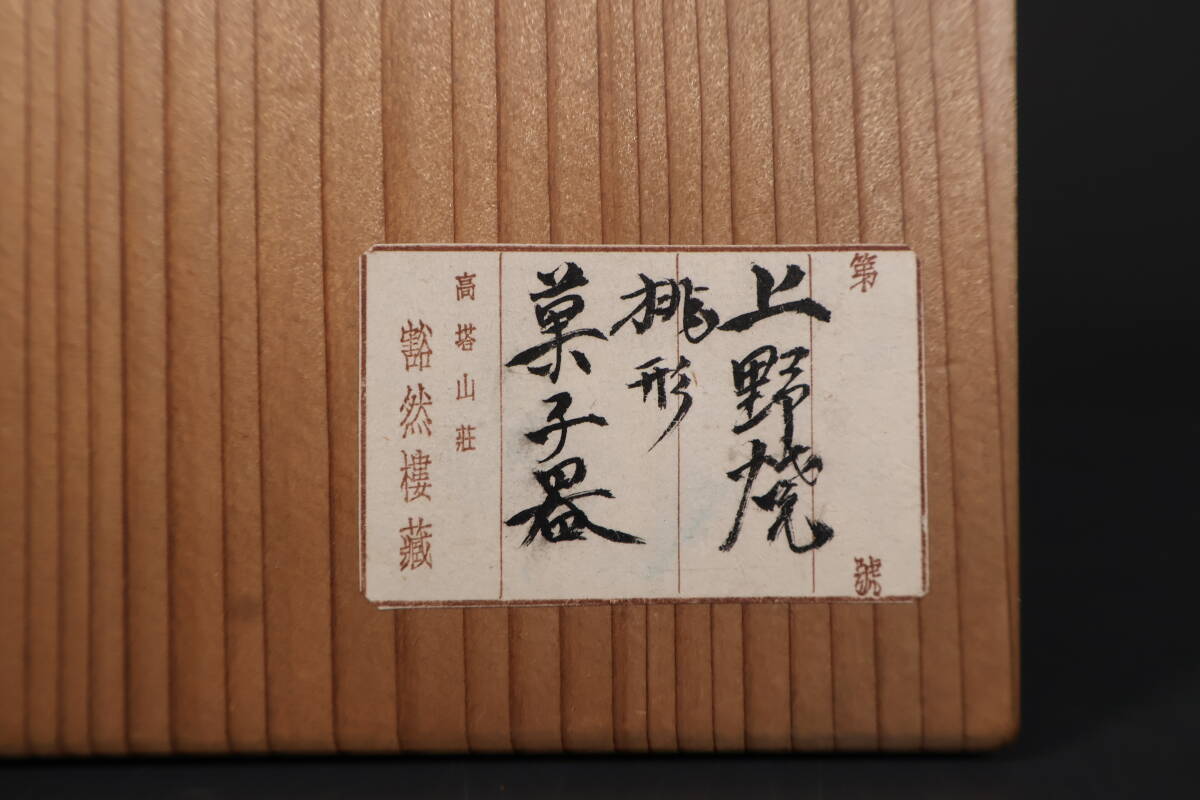 第　號
上野燒
桃形
菓子器
高塔山莊
豁然樓藏